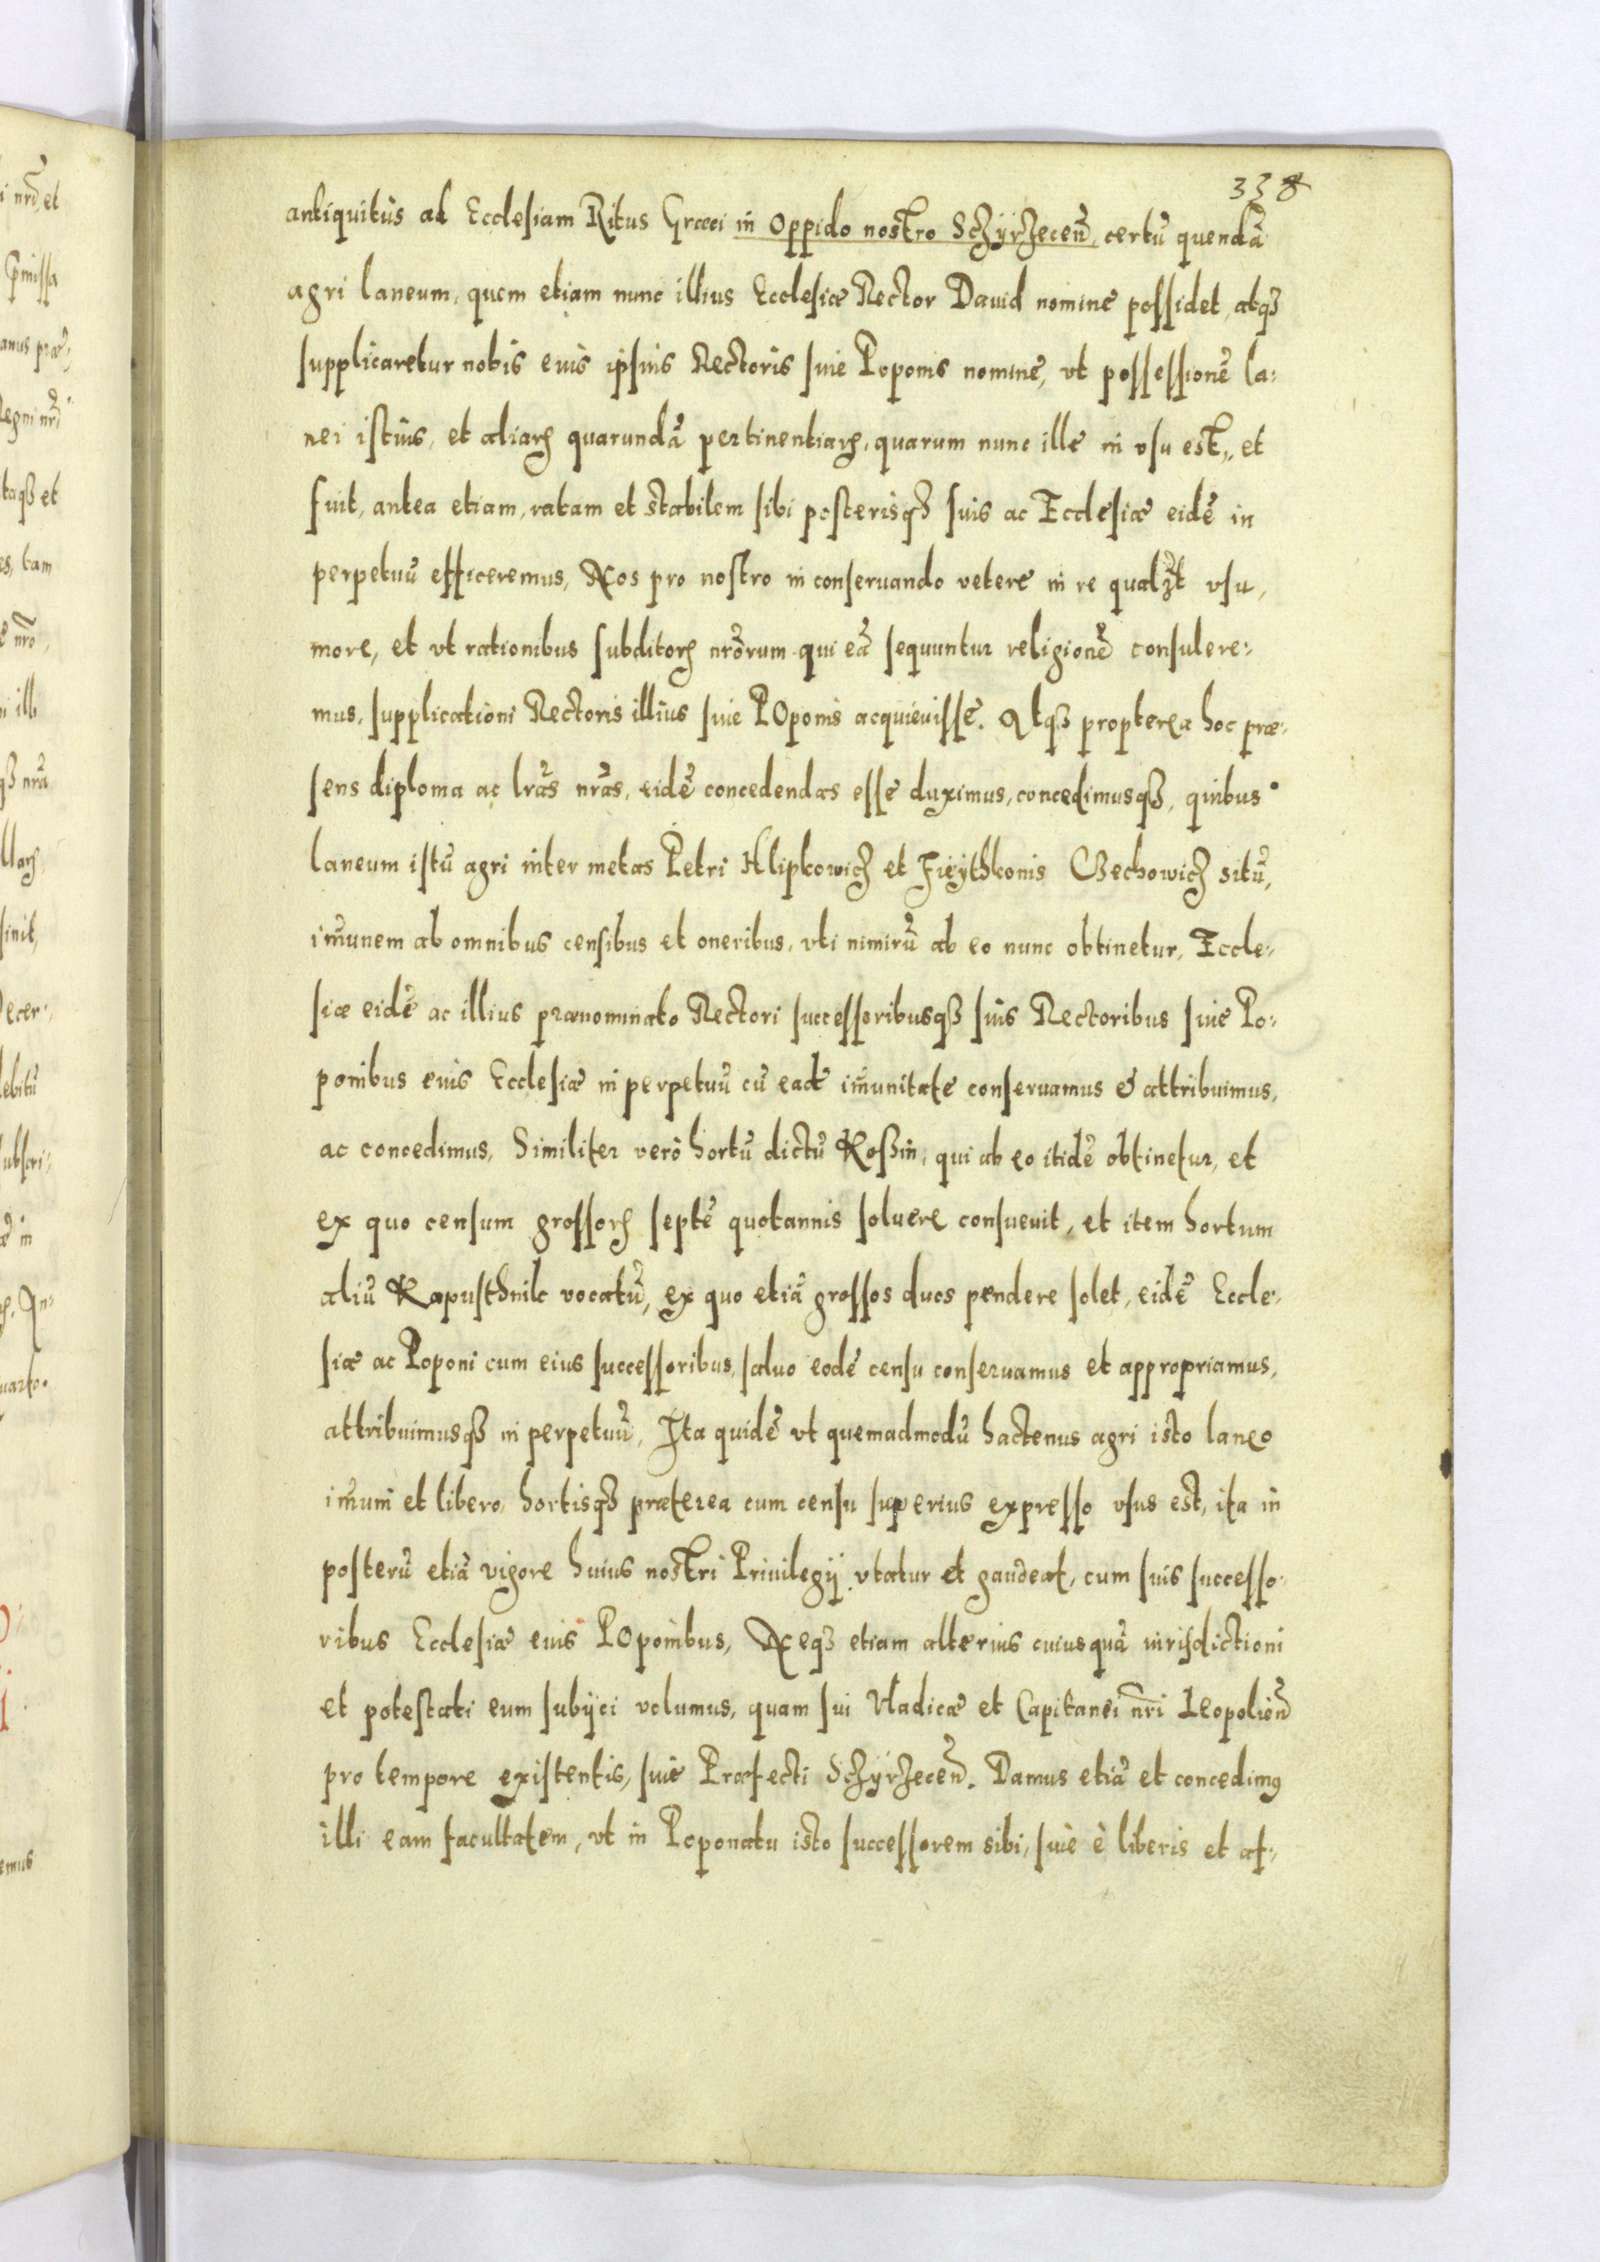 338
antiquitùs ad Ecclesiam Ritus Græci in Oppido nostro Sczyrzecen̄, certū quendā
agri laneum, quem etiam nunc illius Ecclesiæ Rector Dauid nomine possidet, atqȝ
supplicaretur nobis eius ipsius Rectoris siue Poponis nomine, vt possessionē la:
nei istius, et aliarꝫ quarundā pertinentiarꝫ, quarum nunc ille in vsu est, et
fuit, antea etiam, ratam et stabilem sibi posterisqȝ suis ac Ecclesiæ eidē in
perpetuū efficeremus, Nos pro nostro in conseruando vetere in re qualꝫt vsu,
more, et vt rationibus subditorꝫ nr̄orum qui eā sequuntur religionē consulere:
mus, supplicationi Rectoris illius siue POponis acquieuisse. Atqȝ propterea hoc præ:
sens diploma ac lr̄as nr̄as, eidē concedendas esse duximus, concedimusqȝ, quibus
laneum istū agri inter metas Petri Hlipkowicz et Fieythkonis Czechowicz sitū,
im̄unem ab omnibus censibus et oneribus, vti nimirū ab eo nunc obtinetur, Eccle:
siæ eidē ac illius prænominato Rectori successoribusqȝ suis Rectoribus siue Po:
ponibus eius Ecclesiæ in perpetuū cū eadē im̄unitate conseruamus & attribuimus,
ac concedimus, Similiter verò hortū dictū Roßin, qui ab eo itidē obtinetur, et
ex quo censum grossorꝫ septē quotannis soluere consueuit, et item hortum
aliū Kapusthnik vocatū, ex quo etiā grossos duos pendere solet, eidē Eccle:
siæ ac Poponi cum eius successoribus, saluo eodē censu conseruamus et appropriamus,
attribuimusqȝ in perpetuū, Ita quidē vt quemadmodū hactenus agri isto laneo
im̄uni et libero, hortisqȝ præterea cum censu superius expresso vsus est, ita in
posterū etiā vigore huius nostri Priuilegij vtatur et gaudeat, cum suis successo:
ribus Ecclesiæ eius POponibus, Neqȝ etiam alterius cuiusquā iurisdictioni
et potestati eum subijci volumus, quam sui Vladicæ et Capitanei nr̄i Leopolien̄
pro tempore existentis, siue Præfecti Sczyrzecen̄. Damus etiā et concedimꝰ
illi eam facultatem, vt in Poponatu isto successorem sibi, siue è liberis et af: